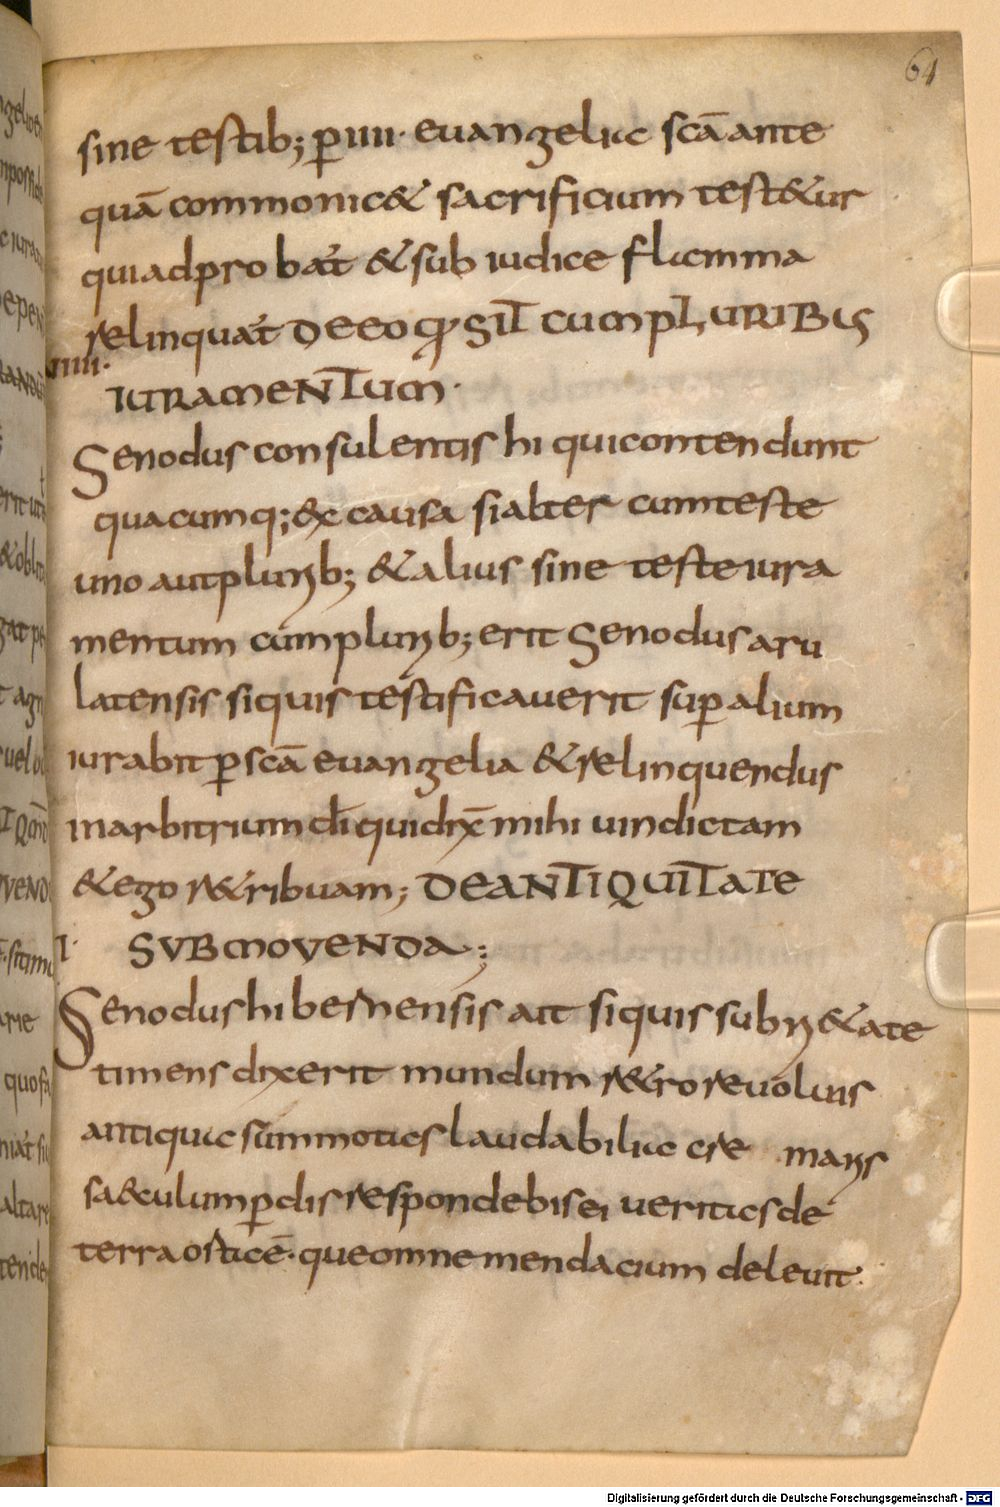 64
sine testib; ꝑ iiii· euangelia scā ante
quā commonic& sacrificium test&ur
qui adprobat & sub iudice flamma
relinquat DE EO Qđ SIT CUM PLURIBUS
IIII·
IURAMENTUM·
Senodus consulentis hi qui contendunt
quacumq; ex causa si alter cum teste
uno aut plurib; & alius sine teste iura
mentum cum plurib; erit Senodus aru
latensis si quis testificauerit suꝑ alium
iurabit ꝑ scā euangelia & relinquendus
in arbitrium dī qui dix̄ mihi uindictam
& ego r&ribuam; DE ANTIQUITATE
I· SUBMOVENDA;
Senodus hibernensis ait si quis subri&ate
timens dixerit mundum r&ro reuoluis
antiqua summotas laudabilia cre maris
saeculum ꝑdis respondebis ei ueritas de
terra ostacē· que omne mendacium deleuit·
Digitalisierung gefördert durch die Deutsche Forschungsgemeinschaft - DFG